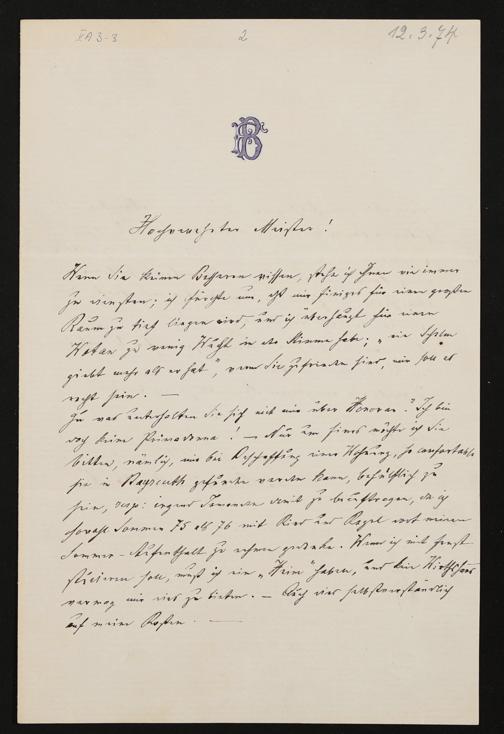 XA 3-3
2
12.3.74
FB
Hochverehrter Meister!
Wenn Sie keinen Besseren wissen, stehe ich Ihnen wie immer
zu Diensten; ich fürchte nur, daß mir Einiges für einen großen
Raum zu tief liegen wird, und ich überhaupt für einen
Wotan zu wenig Wucht in der Stimme habe; „ein Schelm
giebt mehr als er hat“, wenn Sie zufrieden sind, mir soll es
recht sein. —
Zu was unterhalten Sie sich mit mir über Honorar? Ich bin
doch keine Primadonna! — Nur um Eines möchte ich Sie
bitten, nämlich, mir bei Beschaffung einer Wohnung, so comfortable
sie in Bayreuth gefunden werden kann, behülflich zu
sein, resp: irgend Jemanden damit zu beauftragen, da ich
sowohl Sommer 75 als 76 mit Kind und Kegel dort meinen
Sommer-Aufenthalt zu nehmen gedenke. Wenn ich mit Ernst
studieren soll, muß ich ein „Heim“ haben, und kein Wirthshaus
vermag mir dies zu bieten. — Auch dies selbstverständlich
auf meine Kosten. —